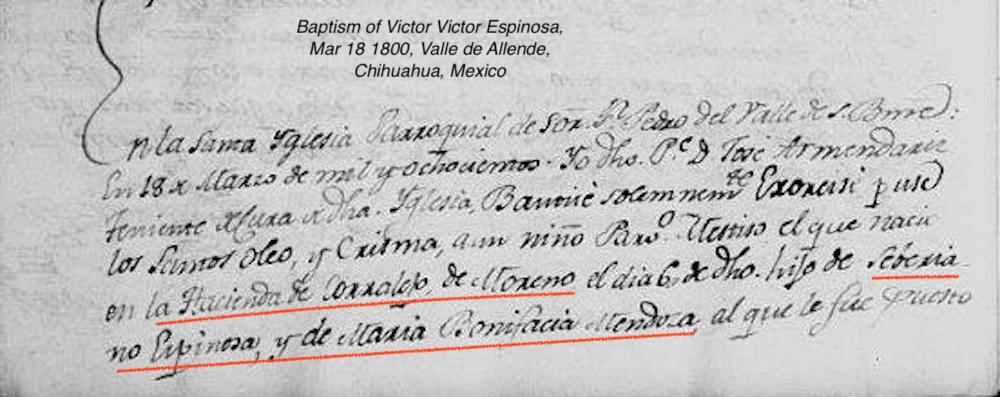 Baptism of Victor Victor Espinosa,
Mar 18 1800, Valle de Allende,
Chihuahua, Mexico
n la Santa Yglesia Parroquial de Sor. Sn. Pedro del Valle de S. Bme:
En 18 de Marzo de mil y ochocientos. Yo dho. Pe. D Jose Armendariz
Teniente de Cura de dha. Yglesia, Bautise solemnemte. Exorcise puse
los Santos Oleo, y Crisma, a un niño Parvo. Mestiso el que nacio
en la Hacienda de Corralejo, de Moreno el dia 6, de dho. hijo de Seberia
no Espinosa, y de Maria Bonifacia Mendoza, al que le fue puesto